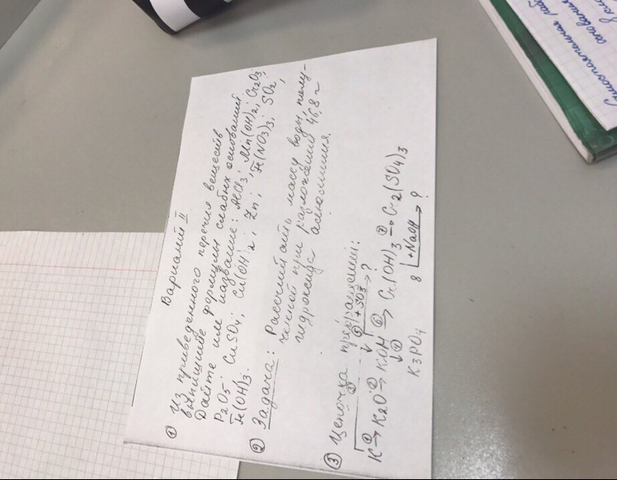 Вариант II
① Из приведенного перечня веществ
выпишите формулы слабых оснований.
Дайте им название: AlCl3, Mn(OH)2; Cr2O3;
P2O5; CuSO4; Cu(OH)2; Zn; Fe(NO3)3; SO2,
Fe(OH)3.
② Задача: Рассчитать массу воды, полу-
ченной при разложении 46,8 г
гидроксида алюминия.
③ Цепочка превращений:
+ SO3 → ?
K → K2O → KOH → Cr(OH)3 → Cr2(SO4)3
K3PO4
8 + NaOH → ?